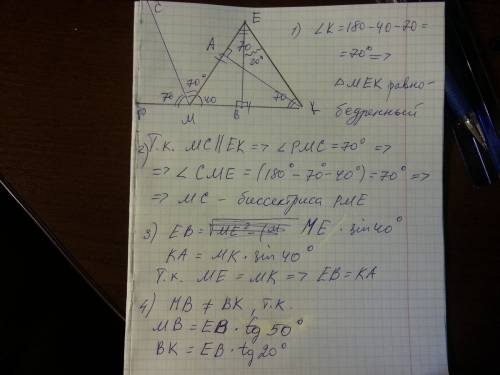 C
E
A
70
20°
70°
70
40
70
P
M
B
K
1) ∠K=180-40-70=
=70° =>
△MEK равно-
бедренный
2) Т.к. MC||EK => ∠PMC=70° =>
=> ∠CME=(180°-70°-40°)=70° =>
=> MC - биссектриса PME
3) EB= ME · sin40°
KA = MK · sin40°
Т.к. ME = MK => EB=KA
4) MB ≠ BK, т.к.
MB = EB · tg 50°
BK = EB · tg 20°